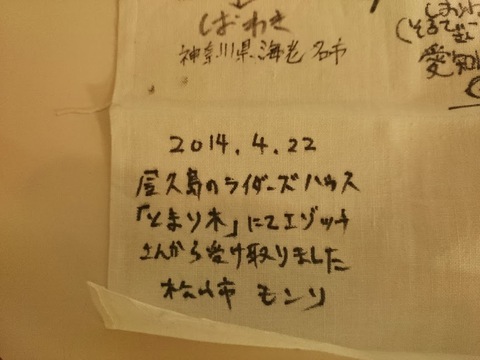 しばわき
神奈川県海老名市
愛知
2014.4.22
屋久島のライダーズハウス
「とまり木」にてエゾッチ
さんから受け取りました
松山市 モンリ